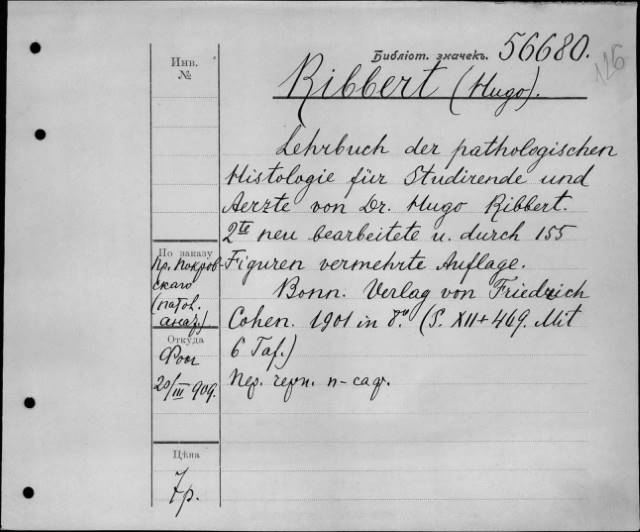 Библіот. значекъ. 56680.
126
Ribbert (Hugo).
Инв.
№
Lehrbuch der pathologischen
Histologie für Studirende und
Aerzte von Dr. Hugo Ribbert.
2te neu bearbeitete u. durch 155
Figuren vermehrte Auflage.
Bonn. Verlag von Friedrich
Cohen. 1901 in 8.º (S. XII+469. Mit
6 Taf.)
Пер. черн. п-саф.
По заказу
Пр. Покров-
скаго
(патол.
анат.)
Откуда
Фоог
20/III 909.
Цѣна
7р.